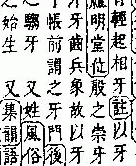 輕起相牙註以牙
應明堂位殷之崇牙
牙齒兵象故以牙
于帳前謂之牙門後
之騶牙 又姓風俗
之始生 又集韻語